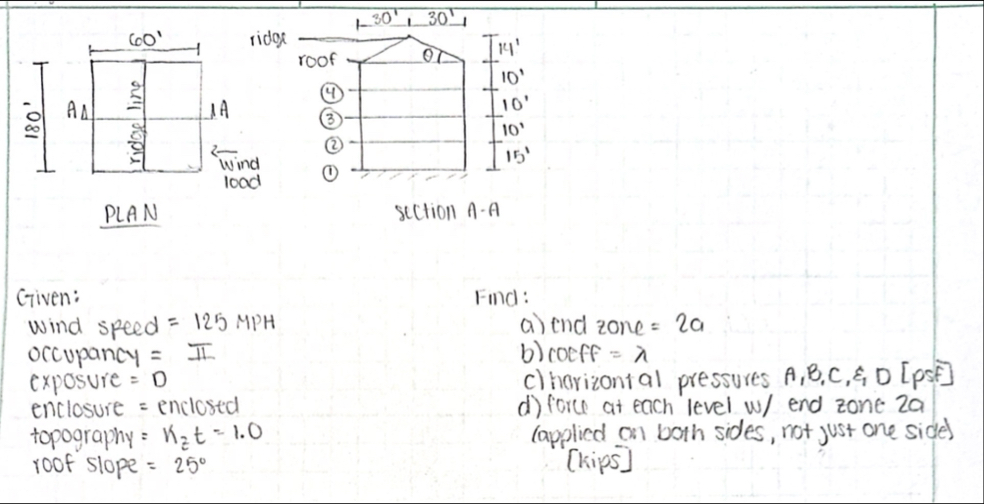 60'
180'
A
A
ridge line
wind
load
PLAN
30' 30'
ridge
roof
θ
14'
10'
10'
10'
15'
④
③
②
①
section A-A
Given:
wind speed = 125 MPH
occupancy = II
exposure = D
enclosure = enclosed
topography = Kzt = 1.0
roof slope = 25°
Find:
a) end zone = 2a
b) coeff = λ
c) horizontal pressures A, B, C, & D [psf]
d) force at each level w/ end zone 2a
(applied on both sides, not just one side)
[kips]